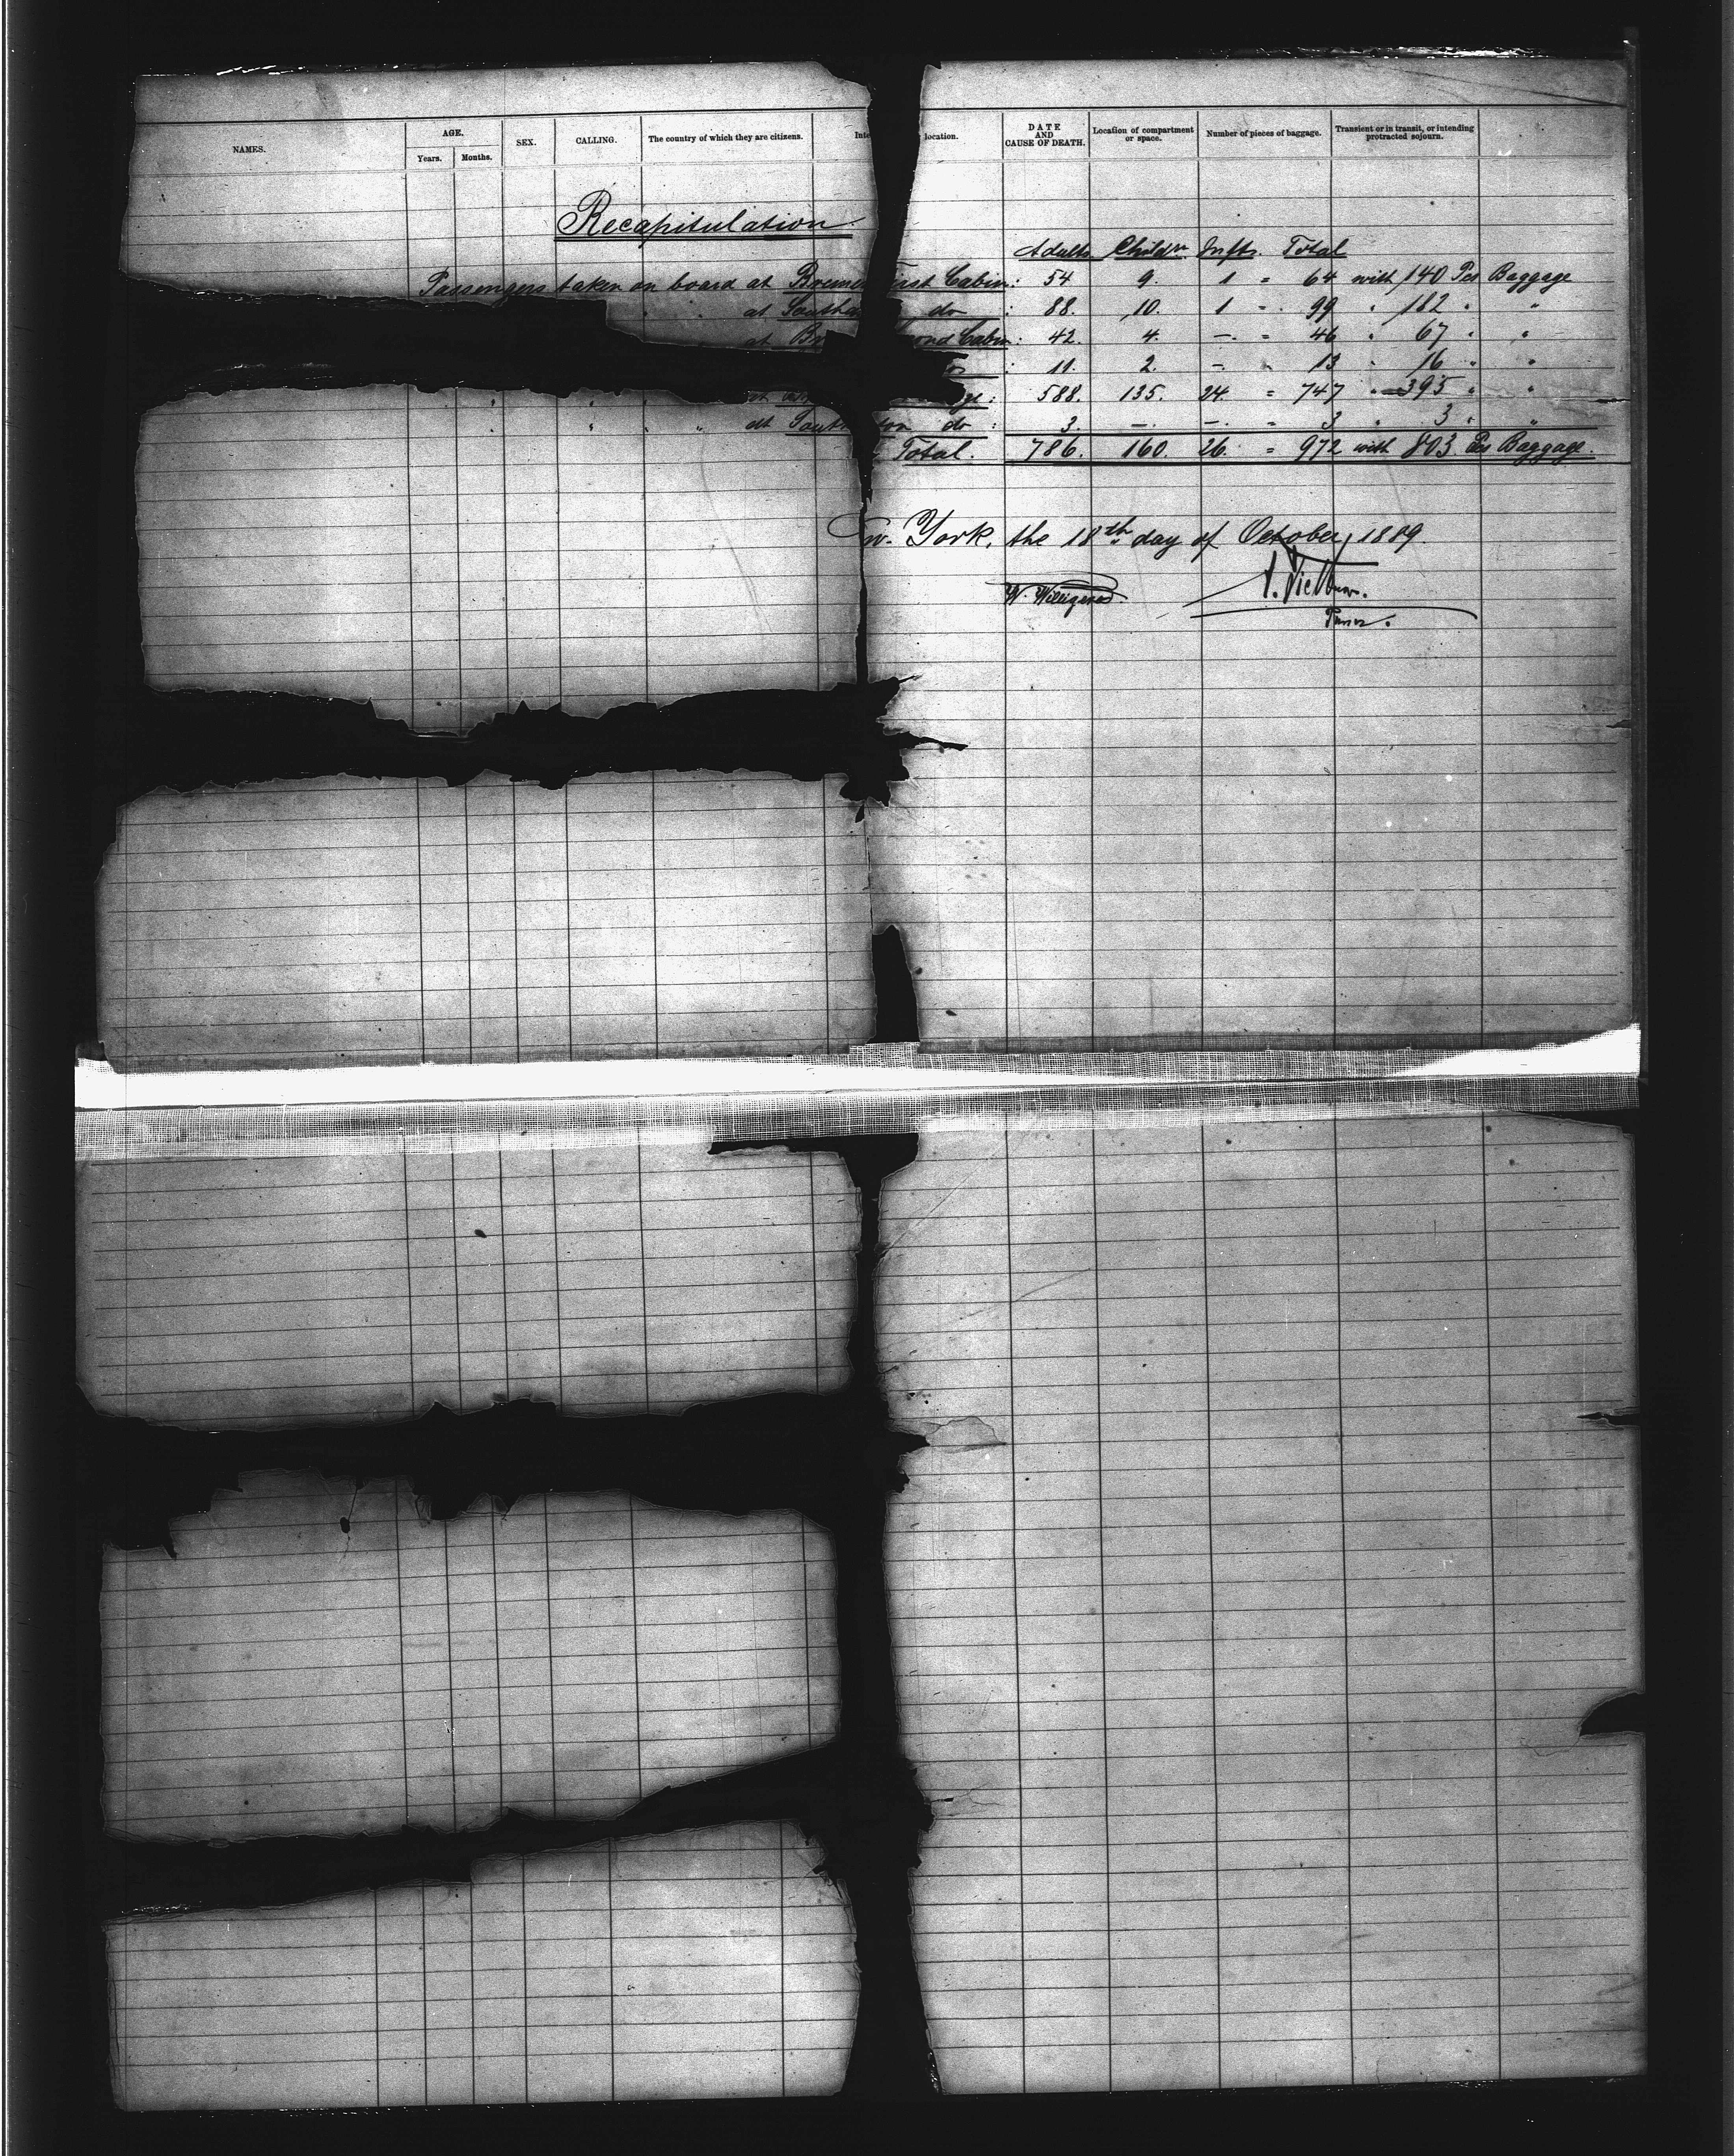 NAMES. AGE. Years. Months. SEX. CALLING. The country of which they are citizens. Inte location. DATE AND CAUSE OF DEATH. Location of compartment or space. Number of pieces of baggage. Transient or in transit, or intending protracted sojourn.
Recapitulation
Adults Childrn Infts. Total
Passengers taken on board at Breme irst Cabin: 54 9. 1 = 64 with 140 Pcs Baggage
" " at Southa do : 88. 10. 1 = 99 " 182 " "
at Br ond Cabin: 42. 4. — = 46 " 67 " "
: 11. 2. — " 13 " 16 " "
at ge: 588. 135. 24. = 747 " 395 " "
" " " " at South ton do : 3. — —. = 3 " 3 " "
Total. 786. 160. 26. = 972 with 803 Pcs Baggage.
w. York, the 18th day of October, 1889
W. Willigerod